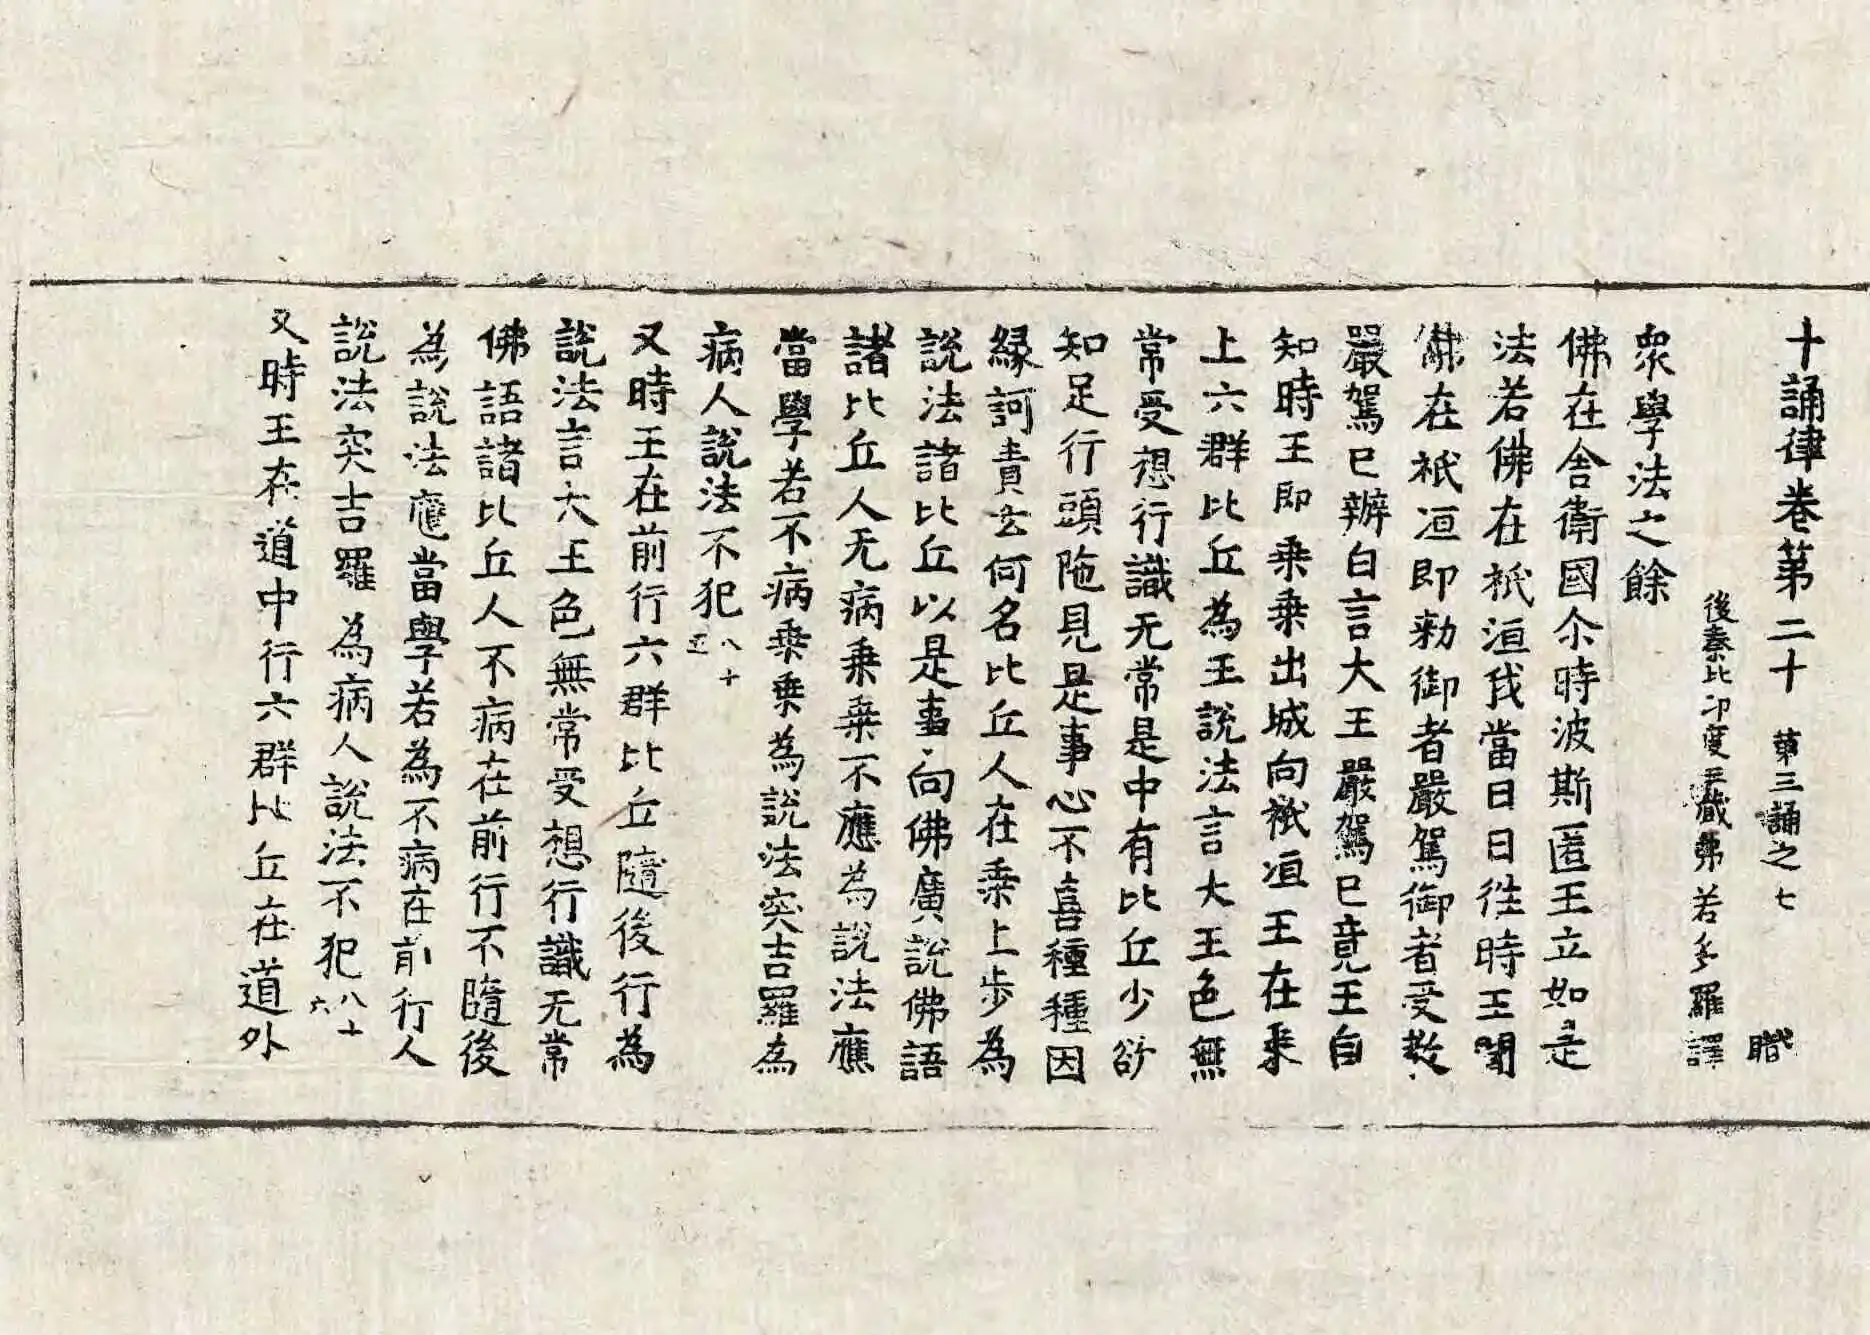 十誦律卷第二十 第三誦之七 職
後秦比丘弗若多羅譯
眾學法之餘
佛在舍衛國尒時波斯匿王立如是
法若佛在祇洹我當日日徃時王聞
佛在祇洹即勑御者嚴駕御者受教
嚴駕已辦白言大王嚴駕已竟王自
知時王即乗乗出城向祇洹王在乗
上六群比丘為王說法言大王色無
常受想行識无常是中有比丘少欲
知足行頭陁見是事心不喜種種因
緣訶責云何名比丘人在乗上步為
說法諸比丘以是事向佛廣說佛語
諸比丘人无病乗乗不應為說法應
當學若不病乗乗為說法突吉羅為
病人說法不犯八十五
又時王在前行六群比丘隨後行為
說法言大王色無常受想行識无常
佛語諸比丘人不病在前行不隨後
為說法應當學若為不病在前行人
說法突吉羅為病人說法不犯八十六
又時王在道中行六群比丘在道外